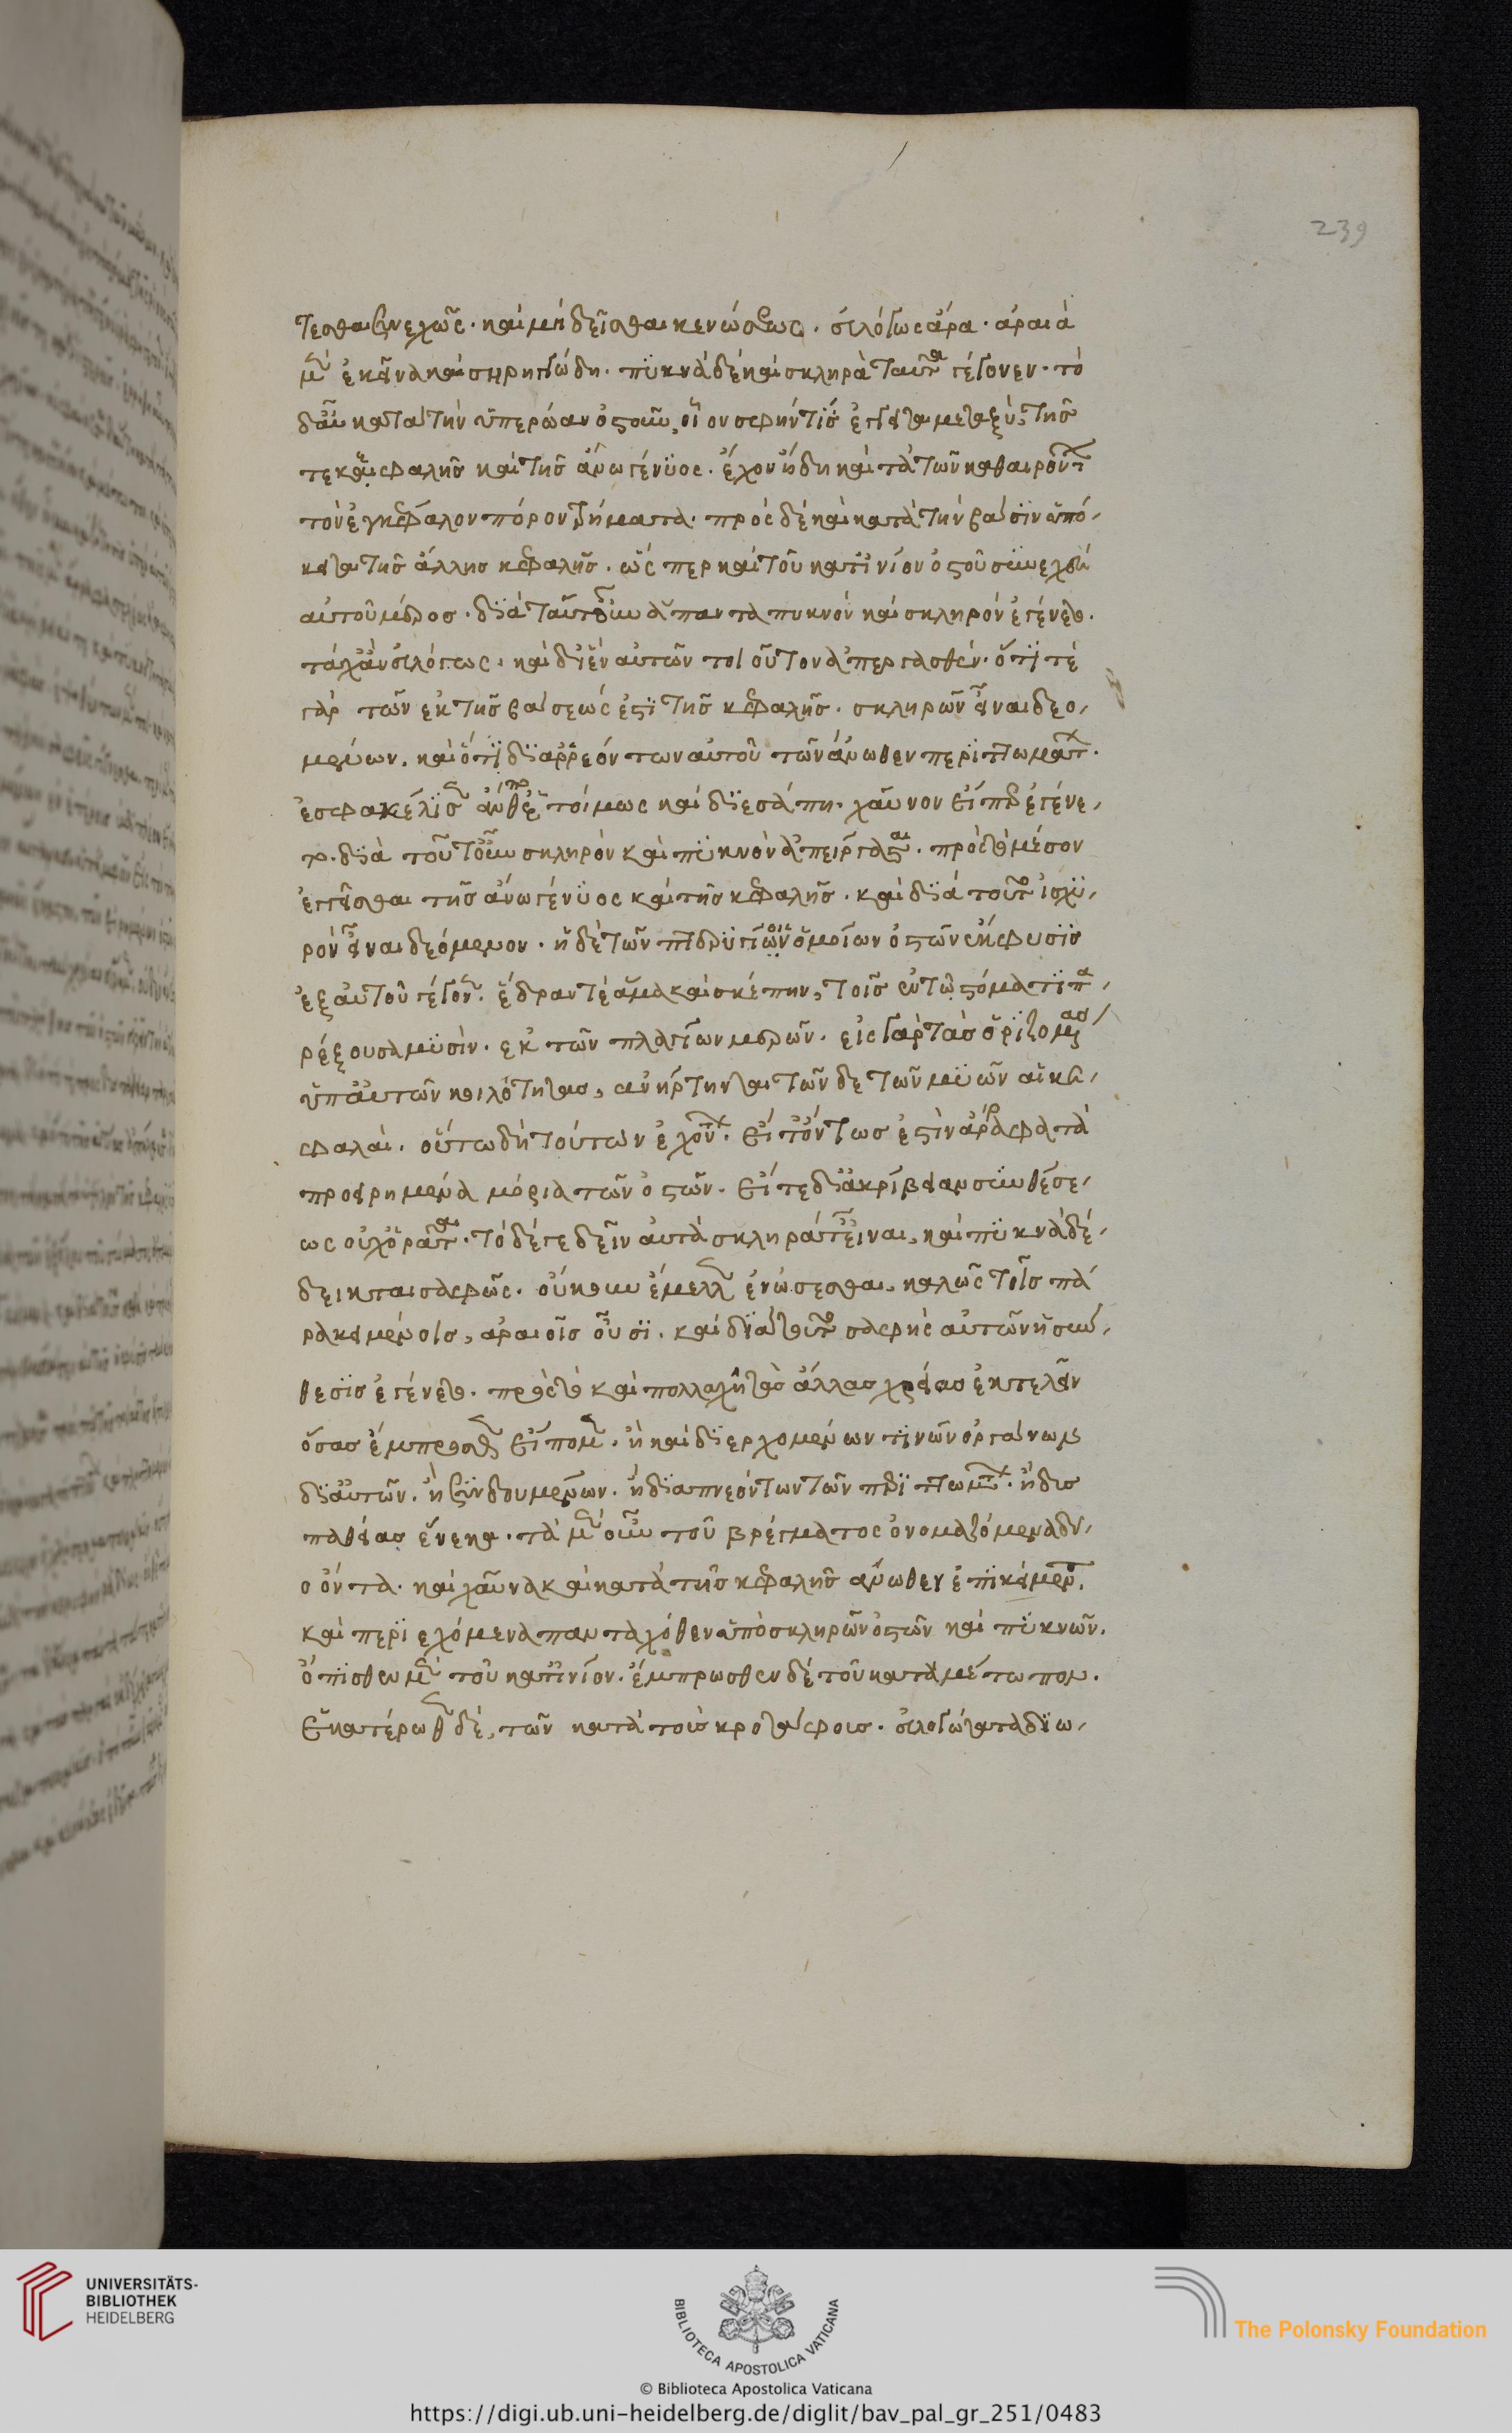 239
τεσθαι συνεχῶς· καὶ μὴ δεῖσθαι κενώσεως. εὐλόγως ἄρα· ἀραιὰ
μὲν ἐκεῖνα καὶ σηραγγώδη· πυκνὰ δὲ καὶ σκληρὰ ταῦτα γέγονεν· τὸ
δ' αὖ κατὰ τὴν ὑπερώαν ὀστοῦν, οἷον σφήν τις ἔγκειται μεταξὺ, τῆς
τε κεφαλῆς καὶ τῆς ἄνω γένυος. ἔχον ἤδη καὶ τὰ τῶν καθαιρόντων
τὸν ἐγκέφαλον πόρον τρήματα. πρὸς δὲ καὶ κατὰ τὴν βάσιν ὑπό-
κειται τῆς ἄλλης κεφαλῆς. ὥς περ καὶ τοῦ κατ' ἰνίον ὀστοῦ συνεχὲς
αὐτοῦ μέρος. διὰ ταῦτ' οὖν ἅπαντα πυκνὸν καὶ σκληρὸν ἐγένετο.
τάχ' ἂν εὐλόγως. καὶ δι' ἓν αὐτῶν τοιοῦτον ἀπεργασθέν. ὅτι τέ
γὰρ τῶν ἐκ τῆς βάσεώς ἐστι τῆς κεφαλῆς. σκληρῶν εἶναι δεο-
μένων. καὶ ὅτι διαῤῥεόντων αὐτοῦ τῶν ἄνωθεν περιττωμάτων.
ἐσφακέλισεν ἄν ποθ' ἑτοίμως καὶ διεσάπη. χαῦνον εἴπερ ἐγένε-
το. διὰ τοῦτ' οὖν σκληρὸν καὶ πυκνὸν ἀπείργασται. πρὸς τὸ μέσον
ἐγκεῖσθαι τῆς ἄνω γένυος καὶ τῆς κεφαλῆς. καὶ διὰ τοῦτο ἰσχυ-
ρὸν εἶναι δεόμενον. ἡ δὲ τῶν πτερυγίων ὁμοίων ὀστῶν ἔκφυσις
ἐξ αὐτοῦ γέγονεν. ἕδραν τὲ ἅμα καὶ σκέπην, τοῖς ἐν τῷ στόματι πα-
ρέξουσα μυσὶν. ἐκ τῶν πλαγίων μερῶν. εἰς γὰρ τὰς ὁριζομένας
ὑπ' αὐτῶν κοιλότητας, ἀνήρτηνται τῶν δε τῶν μυῶν αἱ κε-
φαλαί. οὕτω δὴ τούτων ἐχόντων. εἴτ' ὄντως ἐστὶν ἄραφα τὰ
προειρημένα μόρια τῶν ὀστῶν. εἴτε δι' ἀκρίβειαν συνθέσε-
ως οὐχ ὁρᾶται. τὸ δέ γε δεῖν αὐτὰ σκληρά τ' εἶναι, καὶ πυκνὰ δέ-
δεικται σαφῶς. οὔκουν ἔμελλεν ἑνώσεσθαι, καλῶς τοῖς πα-
ρακειμένοις, ἀραιοῖς οὖσι. καὶ διὰ τοῦτο σαφὴς αὐτῶν ἡ σύν-
θεσις ἐγένετο. πρὸς τὸ καὶ πολλαχῆ τὰς ἄλλας χρείας ἐκτελεῖν
ὅσας ἔμπροσθεν εἴπομεν. ἢ καὶ διερχομένων τινῶν ὀργάνων
δι' αὐτῶν. ἢ συνδουμένων. ἢ διαπνεόντων τῶν περιττωμάτων. ἢ δυσ
παθείας ἕνεκα. τὰ μὲν οὖν τοῦ βρέγματος ὀνομαζόμενα δύ-
ο ὄντα. καὶ χαῦνα καὶ κατὰ τῆς κεφαλῆς ἄνωθεν ἐπικείμενα.
καὶ περιεχόμενα πανταχόθεν ὑπὸ σκληρῶν ὀστῶν καὶ πυκνῶν.
ὄπισθεν μὲν τοῦ κατ' ἰνίον. ἔμπρωσθεν δὲ τοῦ κατὰ μέτωπον.
ἑκατέρωθεν δὲ, τῶν κατὰ τοὺς κροτάφους. εὐλογώτατα δι' ὠ-
UNIVERSITÄTS-
BIBLIOTHEK
HEIDELBERG
BIBLIOTECA APOSTOLICA VATICANA
The Polonsky Foundation
© Biblioteca Apostolica Vaticana
https://digi.ub.uni-heidelberg.de/diglit/bav_pal_gr_251/0483